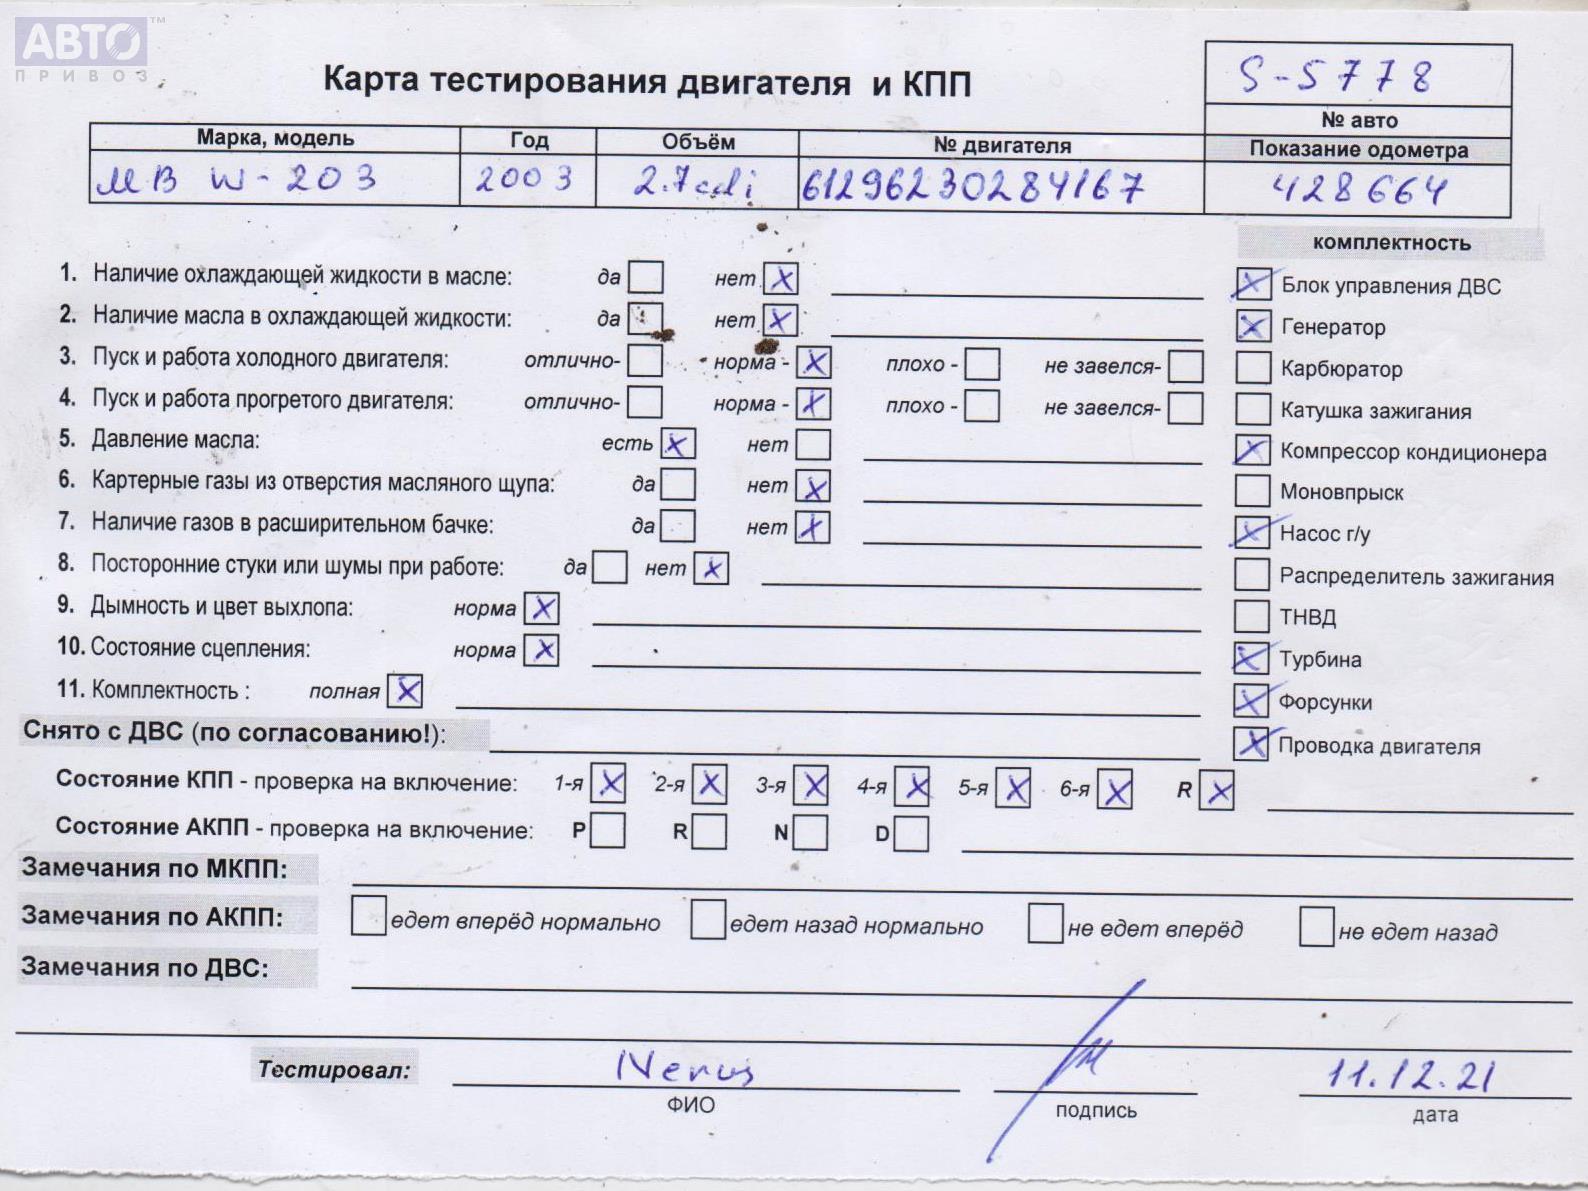 АВТО™
ПРИВОЗ
Карта тестирования двигателя и КПП
S-5778
№ авто
Марка, модель Год Объём № двигателя Показание одометра
MB W-203 2003 2.7 cdi 61296230284167 428664
комплектность
1. Наличие охлаждающей жидкости в масле: да нет X
2. Наличие масла в охлаждающей жидкости: да нет X
3. Пуск и работа холодного двигателя: отлично- норма - X плохо - не завелся-
4. Пуск и работа прогретого двигателя: отлично- норма - X плохо - не завелся-
5. Давление масла: есть X нет
6. Картерные газы из отверстия масляного щупа: да нет X
7. Наличие газов в расширительном бачке: да нет X
8. Посторонние стуки или шумы при работе: да нет X
9. Дымность и цвет выхлопа: норма X
10. Состояние сцепления: норма X
11. Комплектность : полная X
X Блок управления ДВС
X Генератор
Карбюратор
Катушка зажигания
X Компрессор кондиционера
Моновпрыск
X Насос г/у
Распределитель зажигания
ТНВД
X Турбина
X Форсунки
X Проводка двигателя
Снято с ДВС (по согласованию!):
Состояние КПП - проверка на включение: 1-я X 2-я X 3-я X 4-я X 5-я X 6-я X R X
Состояние АКПП - проверка на включение: P R N D
Замечания по МКПП:
Замечания по АКПП: едет вперёд нормально едет назад нормально не едет вперёд не едет назад
Замечания по ДВС:
Тестировал: 11.12.21
ФИО подпись дата